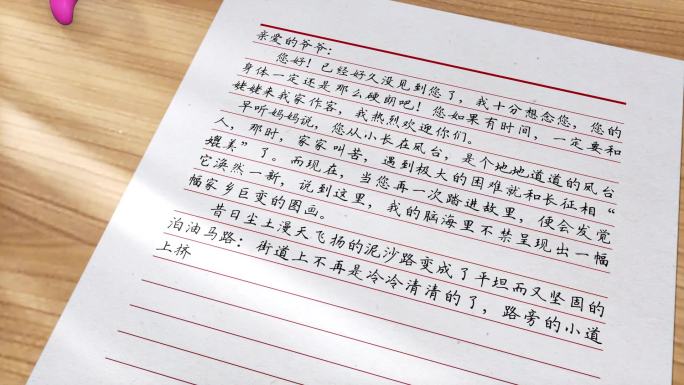 亲爱的爷爷：
您好！已经好久没见到您了，我十分想念您，您的
身体一定还是那么硬朗吧！您如果有时间，一定要和
姥姥来我家作客，我热烈欢迎你们。
早听妈妈说，您从小长在凤台，是个地地道道的凤台
人，那时，家家叫苦，遇到极大的困难就和长征相“
媲美”了。而现在，当您再一次踏进故里，便会发觉
它涣然一新，说到这里，我的脑海里不禁呈现出一幅
幅家乡巨变的图画。
昔日尘土漫天飞扬的泥沙路变成了平坦而又坚固的
泊油马路；街道上不再是冷冷清清的了，路旁的小道
上挤